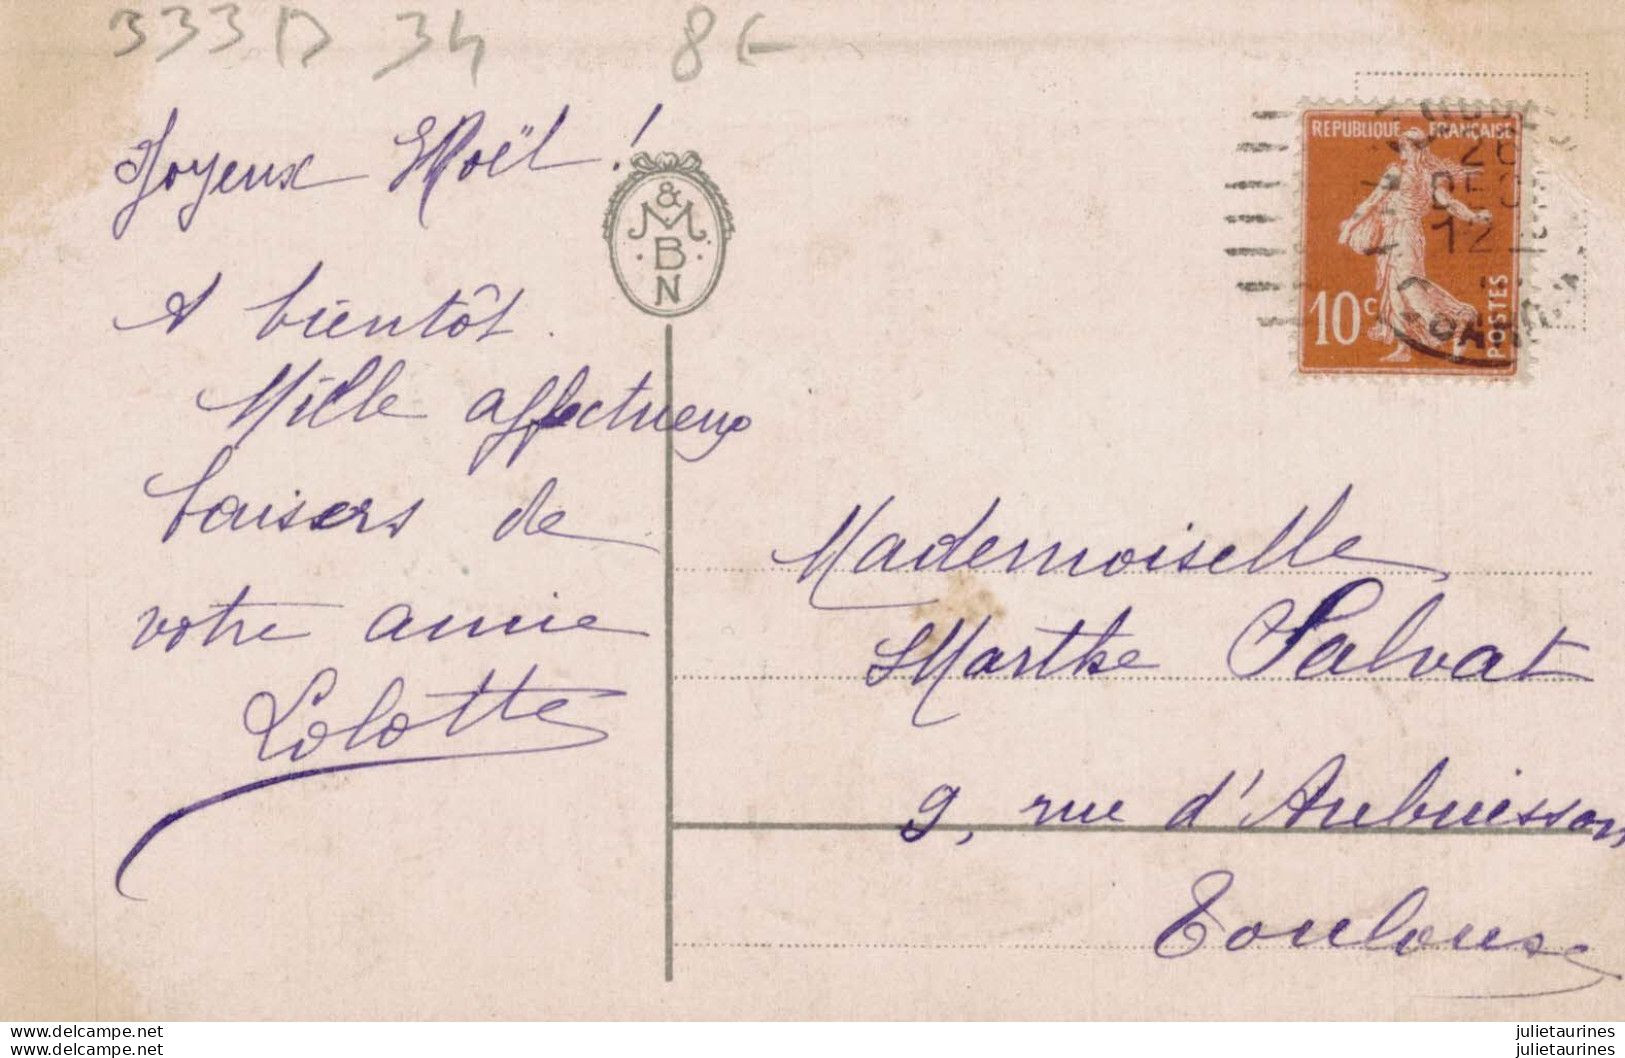 333D 34 8€
Joyeux Noël !
A bientôt.
Mille affectueux
baisers de
votre amie
Lolotte
&
M
B
N
REPUBLIQUE FRANÇAISE
10c
POSTES
26
DEC
12
GARE
Mademoiselle
Marthe Salvat
9, rue d'Aubuisson,
Toulouse
www.delcampe.com
www.delcampe.com
julietaurines
julietaurines